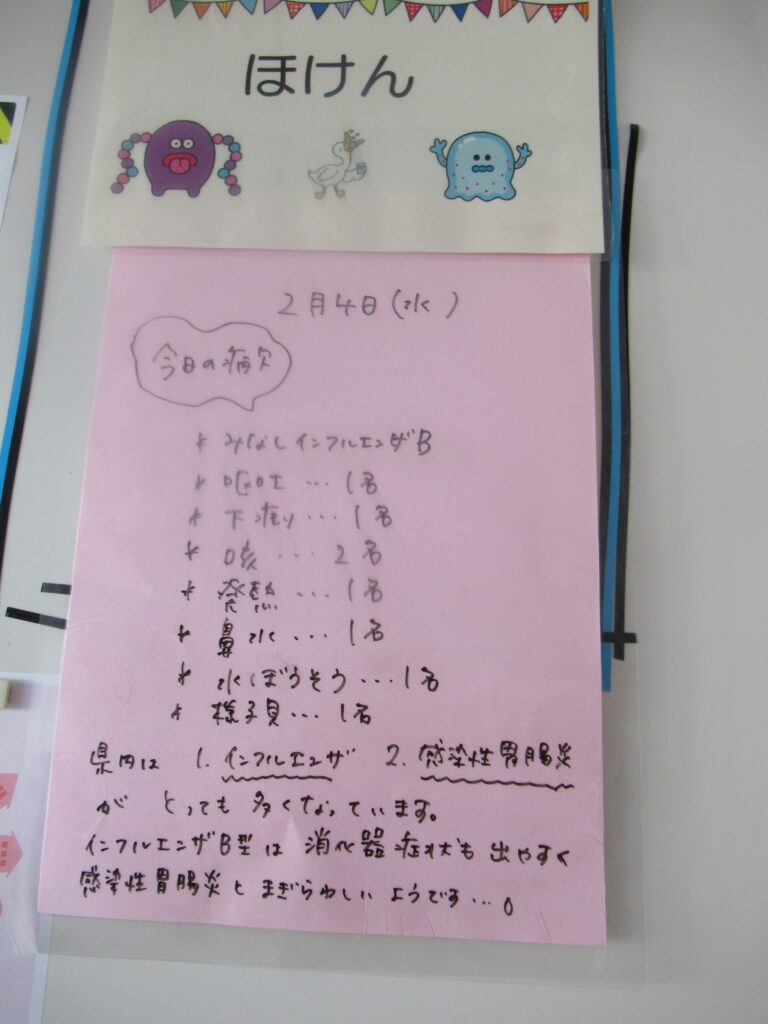 ほけん
2月4日(水)
今日の病欠
* みなしインフルエンザB
* 嘔吐…1名
* 下痢…1名
* 咳…2名
* 発熱…1名
* 鼻水…1名
* 水ぼうそう…1名
* 様子見…1名
県内は 1. インフルエンザ 2. 感染性胃腸炎
が とっても 多くなっています。
インフルエンザB型は 消化器症状も出やすく
感染性胃腸炎と まぎらわしいようです…。